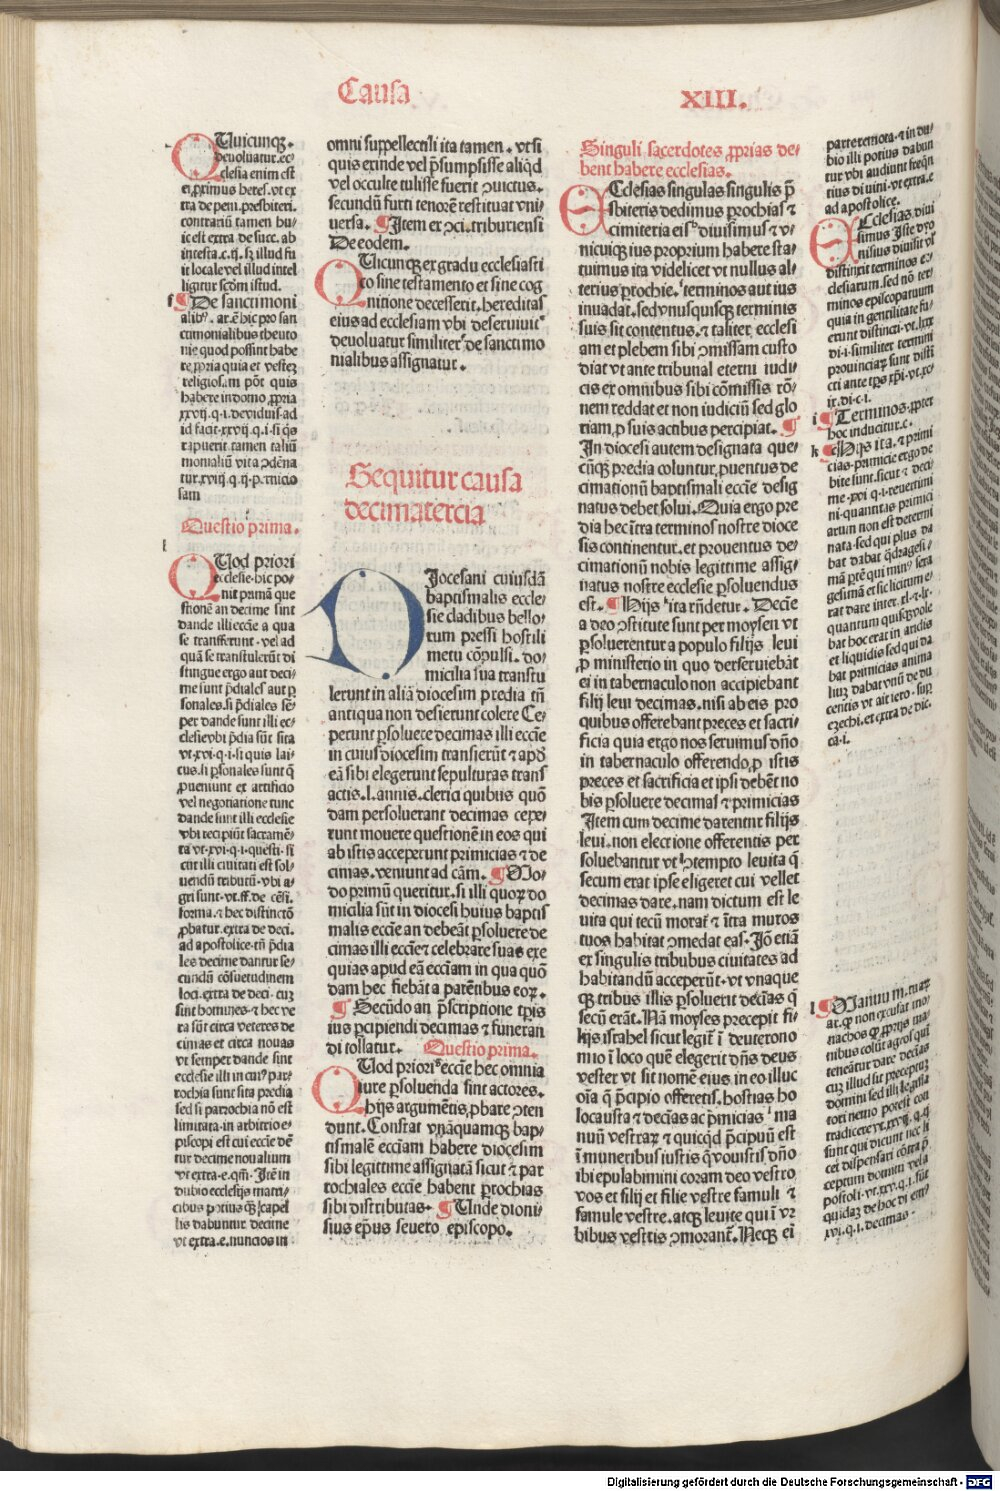 Causa
XIII.
QUicunq̃.
deuoluatur. ec-
clesia enim est
ei proximus heres. vt ex
tra de pecu. presbiteri.
contrariũ tamen hu-
ic est extra de succ. ab
intesta. c. ij. sꝫ illud fu
it locale vel illud intel
ligitur scd̃m istud.
De sanctimoni
alibꝰ. ar. ẽ hic pro san
ctimonialibus theuto
nie quod possint habe
re ꝓpria quia et vestez
religiosam põt quis
habere in domo ꝓpria
xxvij. q. i. de viduis. ad
id facit. xxvij. q. i. si q̃s
rapuerit. tamen taliũ
monialiũ vita ↄdẽna
tur. xviij. q. ij. p̲nicio
sam
Questio prima.
QUod priori
ecclesie. hic po-
nit primã que
stionẽ an decime sint
dande illi eccl̃e a qua
se transferunt. vel ad
quã se transtulerũt di
stingue ergo aut deci-
me sunt p̃diales aut p̲
sonales. si p̃diales sẽ-
per dande sunt illi ec-
clesie vbi p̃dia sũt sita
vt. xvi. q. i. si quis lai-
cus. si p̲sonales sunt q̃
ꝓueniunt ex artificio
vel negotiatione tunc
dande sunt illi ecclesie
vbi recipiũt sacramẽ-
ta vt. xvi. q. i. questi. si
cut illi ciuitati est sol-
uendũ tributũ. vbi a-
gri sunt. vt. ff. de cẽsi.
forma. ⁊ hec distinctõ
ꝓbatur. extra de deci.
ad apostolice. tñ p̃dia
les decime dantur se-
cundũ cõsuetudinem
loci. extra de deci. cuꝫ
sint homines. ⁊ hec ve
ra sũt circa veteres de
cimas et circa nouas
vt semper dande sint
ecclesie illi in cuiꝰ par-
rochia sunt sita predia
sed si parrochia nõ est
limitata. in arbitrio e-
piscopi est cui eccl̃e dẽ
tur decime noualium
vt extra. e. qm̃. Itẽ in
dubio ecclesijs matri-
cibus potius q̃ꝫ capel
lis dabuntur decime
vt extra. e. nuncios in
omni suppellectili ita tamen. vt si
quis exinde vel p̃sumpsisse aliqd̃
vel occulte tulisse fuerit ↄuictus.
secundũ furti tenorẽ restituat vni-
uersa. Item ex ↄci. triburiensi
De eodem.
QUicunq̃ ex gradu ecclesiasti
co sine testamento et sine cog
nitione decesserit. hereditas
eius ad ecclesiam vbi deseruiuit
deuoluatur similiter de sanctimo
nialibus assignatur.
Sequitur causa
decimatercia
DIocesani cuiusdã
baptismalis eccle-
sie cladibus bello-
rum pressi hostili
metu cõpulsi. do-
micilia sua transtu
lerunt in aliã diocesim predia tñ
antiqua non desierunt colere Ce-
perunt p̲soluere decimas illi eccl̃e
in cuius diocesim transierũt ⁊ apd̃
eã sibi elegerunt sepulturas trans
actis. l. annis. clerici quibus quõ
dam persoluerant decimas cepe-
runt mouere questionẽ in eos qui
ab istis acceperunt primicias ⁊ de
cimas. veniunt ad cãm. Mo-
do primũ queritur. si illi quoꝝ do
micilia sũt in diocesi huius baptis
malis eccl̃e an debeãt p̲soluere de
cimas illi eccl̃e ⁊ celebrare suas exe
quias apud eã eccl̃am in qua quõ
dam hec fiebãt a parẽtibus eoꝝ.
Secũdo an p̃scriptione tp̃is
ius p̲cipiendi decimas ⁊ funeran
di tollatur. Questio prima.
QUod priori eccl̃e hec omnia
iure p̲soluenda sint actores.
hijs argumẽtis ꝓbare ↄten
dunt. Constat vnãquamq̃ bap-
tismalẽ eccl̃am habere diocesim
sibi legittime assignatã sicut ⁊ par
rochiales eccl̃e habent p̲rochias
sibi distributas. Unde dioni-
sius ep̃us seuero episcopo.
Singuli sacerdotes ꝓprias de-
bent habere ecclesias.
ECclesias singulas singulis p̃
sbiteris dedimus p̲rochias ⁊
cimiteria eis diuisimus ⁊ v-
nicuiq̃ ius proprium habere sta-
tuimus ita videlicet vt nullus al-
terius p̲rochie. terminos aut ius
inuadat. sed vnusquisq̃ terminis
suis sit contentus. ⁊ taliter ecclesi
am et plebem sibi ↄmissam custo
diat vt ante tribunal eterni iudi-
cis ex omnibus sibi cõmissis rõ-
nem reddat et non iudiciũ sed glo
riam ꝓ suis actibus percipiat.
In diocesi autem designata que-
cũq̃ predia coluntur, ꝓuentus de
cimationũ baptismali eccl̃e desig
natus debet solui. Quia ergo pre
dia hec ĩtra terminos nostre dioce
sis continentur. et prouentus de-
cimationũ nobis legittime assig-
natus nostre ecclesie p̲soluendus
est. Hijs ita rñdetur. Decĩe
a deo ↄstitute sunt per moysen vt
p̲soluerentur a populo filijs leui
ꝓ ministerio in quo deseruiebãt
ei in tabernaculo non accipiebant
filij leui decimas. nisi ab eis pro
quibus offerebant preces et sacri-
ficia quia ergo nos seruimus dño
in tabernaculo offerendo, ꝓ istis
preces et sacrificia et ipsi debẽt no
bis p̲soluere decimas ⁊ primicias
Item cum decime darentur filijs
leui. non electione offerentis per
soluebantur vt ↄtempto leuita q̃
secum erat ipse eligeret cui vellet
decimas dare. nam dictum est le
uita qui tecũ morat̃ ⁊ ĩtra muros
tuos habitat ↄmedat eas. Iõ etiã
ex singulis tribubus ciuitates ad
habitandũ acceperũt. vt vnaque
q̃ tribus illis p̲solueret decĩas q̃
secũ erãt. Nã moyses precepit fi-
lijs israhel sicut legit̃ ĩ deuterono
mio ĩ loco quẽ elegerit dñs deus
vester vt sit nomẽ eius in eo illuc
oĩa q̃ p̃cipio offeretis. hostias ho
locausta ⁊ decĩas ac p̃micias ma
nuũ vestraꝝ ⁊ quicqd̃ p̃cipuũ est
ĩ muneribus iustis q̃ vouistis dño
ibi epulabimini coram deo vestro
vos et filij et filie vestre famuli ⁊
famule vestre. atq̃ leuite qui ĩ vr
bibus vestris ↄmorant̃. Neq̃ ei
parte remota. ⁊ in du-
bio illi potius dabun
tur vbi audiunt freq̃n
tius diuini. vt extra. e
ad apostolice.
ECclesias. diui
simus Iste dyo
nisius diuisit vl̃
distinxit terminos ec-
clesiarum. sed nõ ter-
minos episcopatuum
quia in gentilitate fu-
erunt distincti. vt. lxxx
di. i. similiter termini
prouinciaꝝ sunt disti
cti ante tp̃s xp̃i. vt. xc-
ix. di. c. i.
Terminos. ꝓpter
hoc inducitur. c.
Hijs ita. ⁊ primi
cias. primicie ergo de
bite sunt. sicut ⁊ deci-
me. xvi. q. i. reuertimi
ni. quantitas primici
arum non est determi
nata. sed qui plus da
bat dabat q̃dragesi-
mã p̲tẽ qui minꝰ sexa
gesimã et sic licitum e-
rat dare inter. xl. ⁊ lx.
quantum quisq̃ vole
bat hoc erat in aridis
et liquidis sed qui da
bat primicias anima
liuꝫ dabat vnũ de du
centis vt ait iero. sup̲
ezechi. et extra de dic.
ca. i.
Manuum. vestraꝝ
ar. q̲ non excusat mo
nachos q̲ ꝓprijs ma-
nibus colũt agros qui
teneãtur dare decĩas
cuꝫ illud sit preceptuꝫ
domini sed illi legisla
tori nemo potest con
tradicere vt. xxvij. q. ij
sunt qui dicunt nec li
cet dispensari cõtra p̃
ceptum domini vel a
postoli. vt. xxv. q. i. sũt
quidaꝫ de hoc vi etiã
xvi. q. i. decimas.